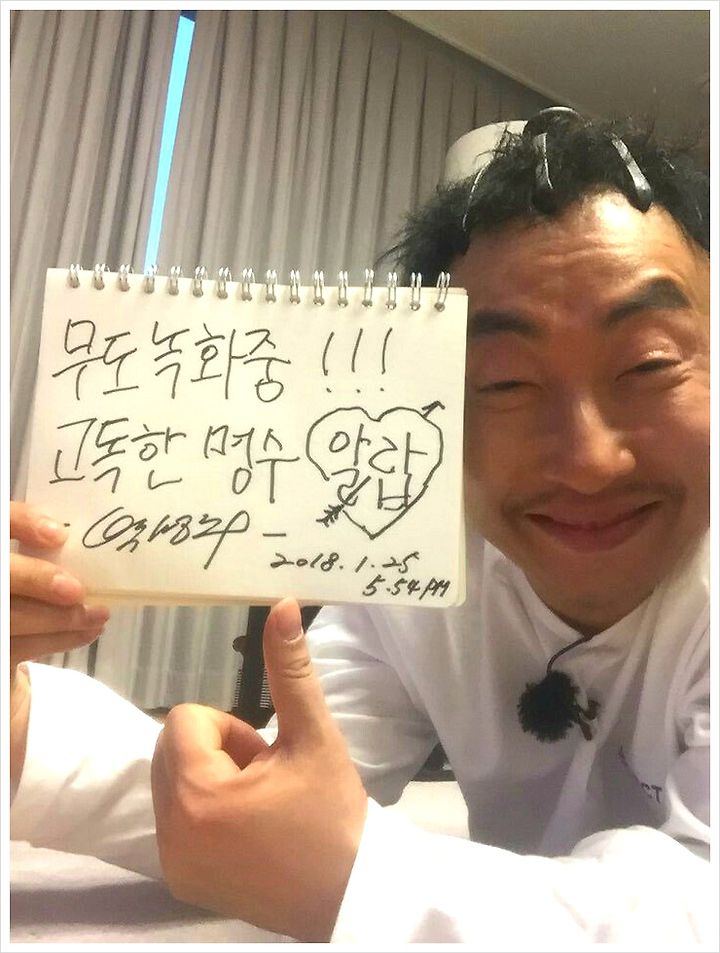 무도녹화중 !!!
고독한 명수 알랍
2018.1.25
5.54 PM